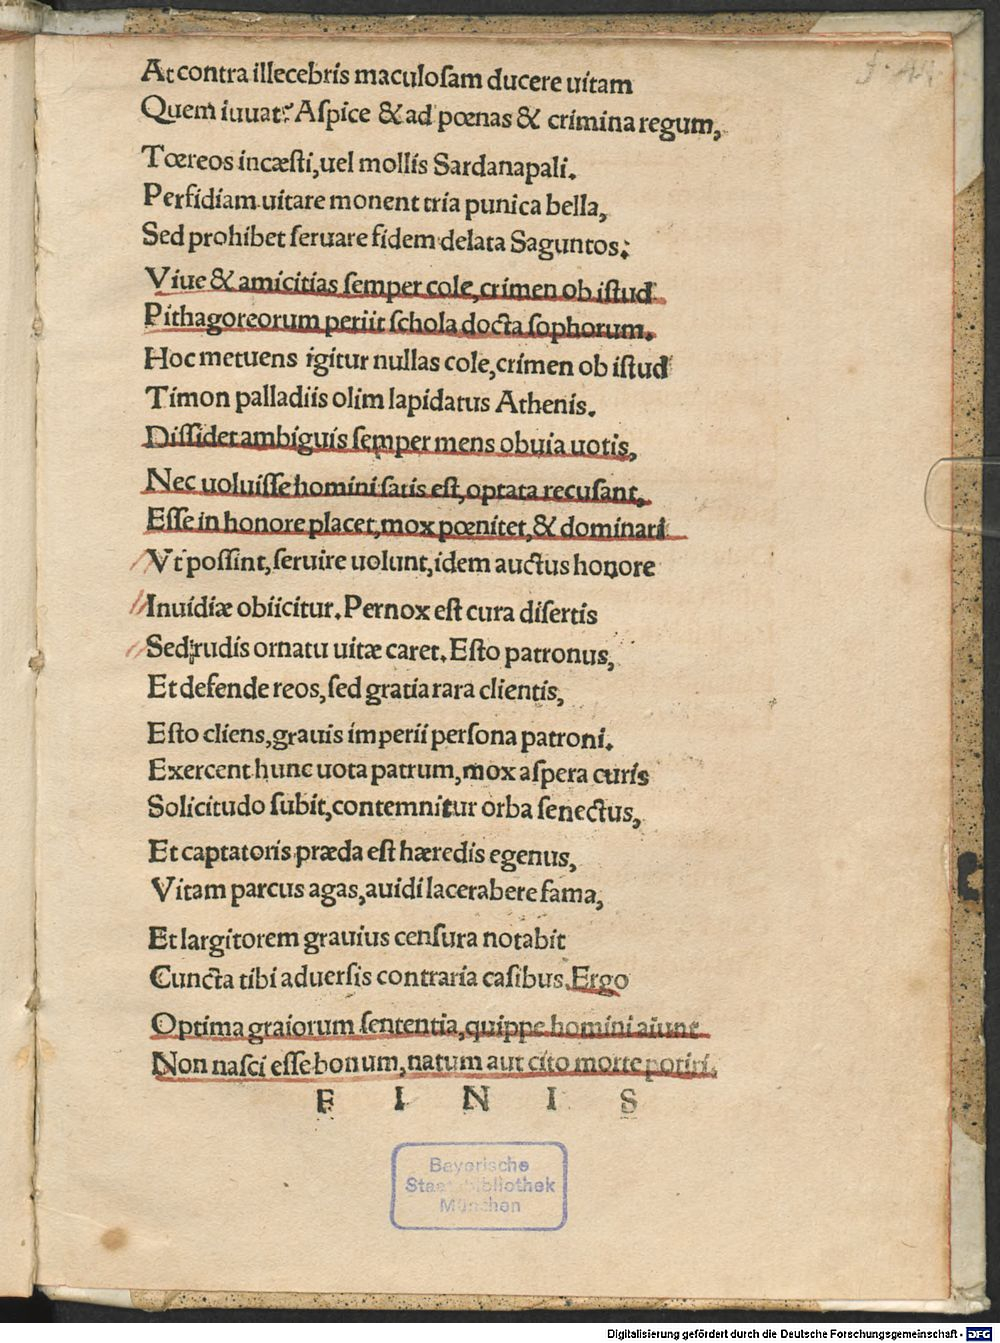 At contra illecebris maculoſam ducere uitam
Quem iuuat? Aſpice & ad pœnas & crimina regum,
Tœreos incæſti, uel mollis Sardanapali.
Perfidiam uitare monent tria punica bella,
Sed prohibet ſeruare fidem delata Saguntos:
Viue & amicitias ſemper cole, crimen ob iſtud
Pithagoreorum periit ſchola docta ſophorum.
Hoc metuens igitur nullas cole, crimen ob iſtud
Timon palladiis olim lapidatus Athenis.
Diſſidet ambiguis ſemper mens obuia uotis,
Nec uoluiſſe homini ſatis eſt, optata recuſant,
Eſſe in honore placet, mox pœnitet, & dominari
Vt poſſint, ſeruire uolunt, idem auctus honore
Inuidiæ obiicitur. Pernox eſt cura diſertis
Sed rudis ornatu uitæ caret. Eſto patronus,
Et defende reos, ſed gratia rara clientis,
Eſto cliens, grauis imperii perſona patroni.
Exercent hunc uota patrum, mox aſpera curis
Solicitudo ſubit, contemnitur orba ſenectus,
Et captatoris præda eſt hæredis egenus,
Vitam parcus agas, auidi lacerabere fama,
Et largitorem grauius cenſura notabit
Cuncta tibi aduerſis contraria caſibus. Ergo
Optima graiorum ſententia, quippe homini aiunt
Non naſci eſſe bonum, natum aut cito morte potiri.
F I N I S
Bayerische
Staatsbibliothek
München
Digitalisierung gefördert durch die Deutsche Forschungsgemeinschaft - DFG